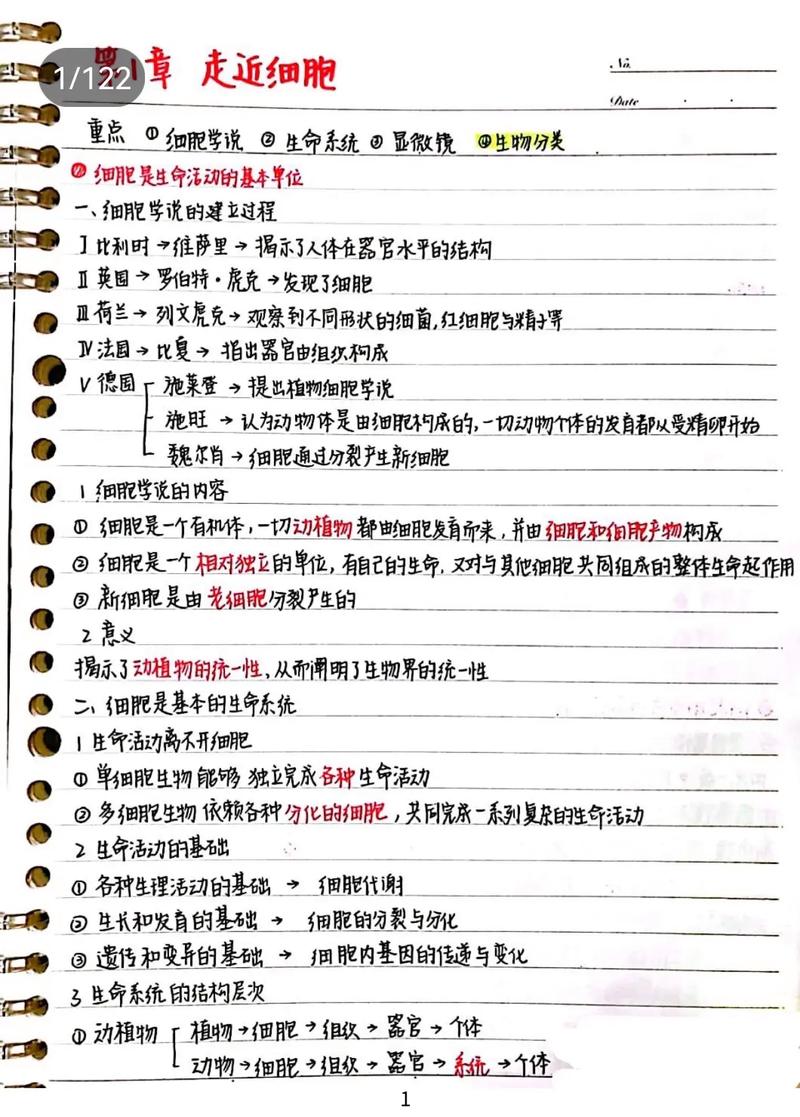 1/122
第1章 走近细胞
No.
Date
重点 ①细胞学说 ②生命系统 ③显微镜 ④生物分类
① 细胞是生命活动的基本单位
一、细胞学说的建立过程
Ⅰ比利时→维萨里→揭示了人体在器官水平的结构
Ⅱ英国→罗伯特·虎克→发现了细胞
Ⅲ荷兰→列文虎克→观察到不同形状的细菌,红细胞与精子等
Ⅳ法国→比夏→指出器官由组织构成
Ⅴ德国 施莱登→提出植物细胞学说
施旺→认为动物体是由细胞构成的,一切动物个体的发育都从受精卵开始
魏尔肖→细胞通过分裂产生新细胞
1 细胞学说的内容
① 细胞是一个有机体,一切动植物都由细胞发育而来,并由细胞和细胞产物构成
② 细胞是一个相对独立的单位,有自己的生命,又对与其他细胞共同组成的整体生命起作用
③ 新细胞是由老细胞分裂产生的
2 意义
揭示了动植物的统一性,从而阐明了生物界的统一性
二、细胞是基本的生命系统
1 生命活动离不开细胞
① 单细胞生物能够独立完成各种生命活动
② 多细胞生物依赖各种分化的细胞,共同完成一系列复杂的生命活动
2 生命活动的基础
① 各种生理活动的基础→细胞代谢
② 生长和发育的基础→细胞的分裂与分化
③ 遗传和变异的基础→细胞内基因的传递与变化
3 生命系统的结构层次
① 动植物 植物→细胞→组织→器官→个体
动物→细胞→组织→器官→系统→个体
1